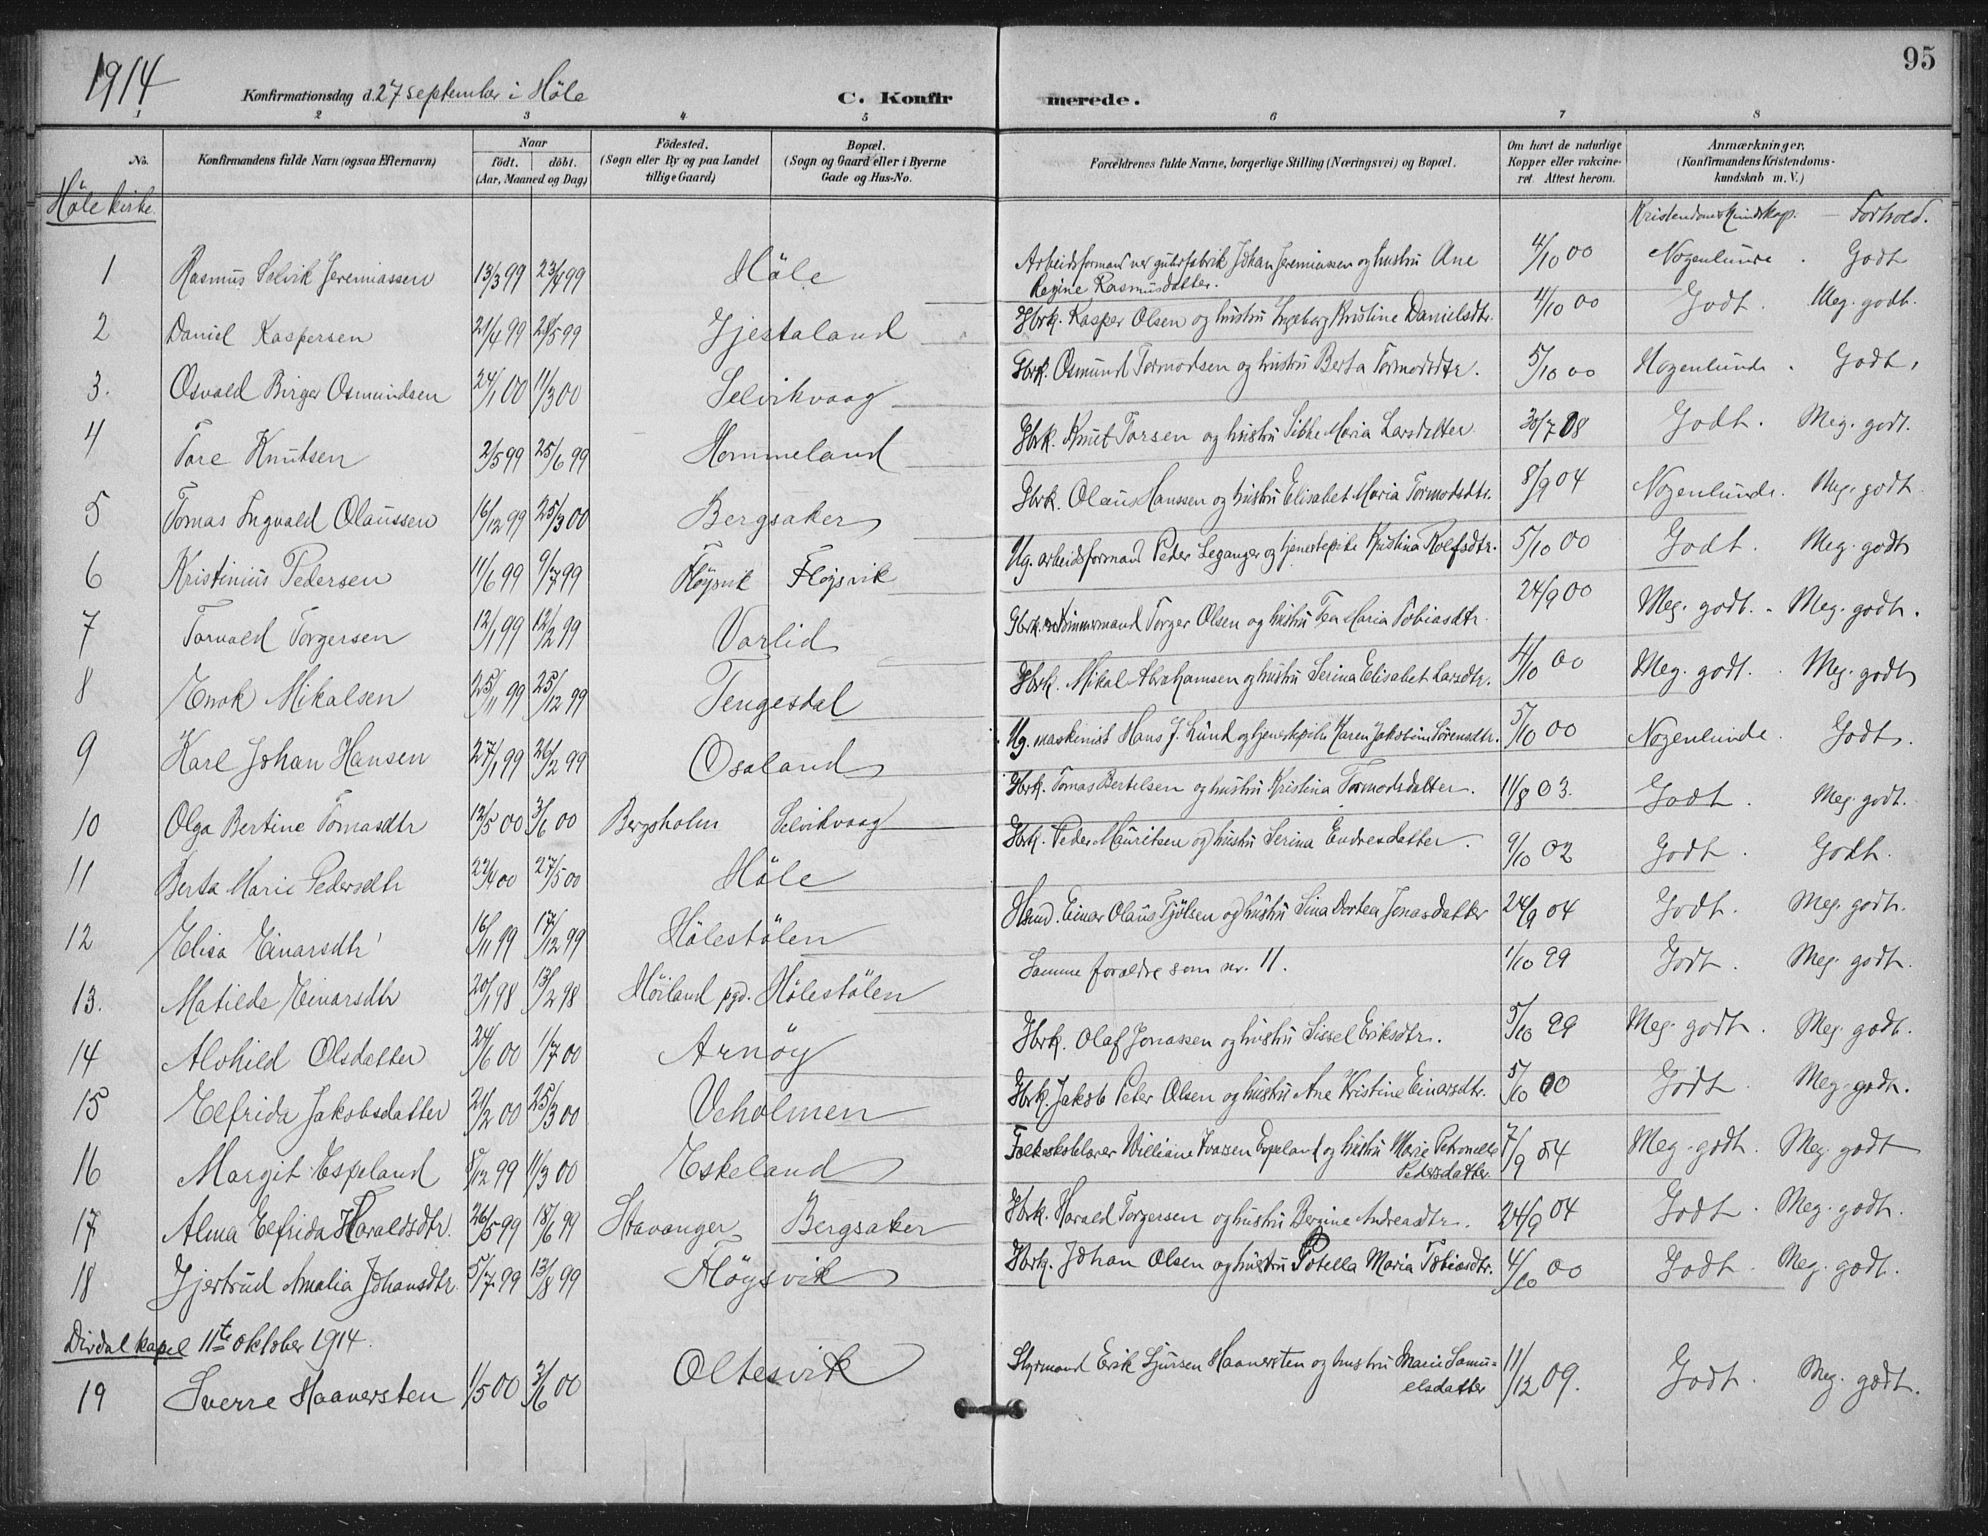 1914
95
Konfirmationsdag d. 27 september i Höle
C. Konfirmerede.
1 2 3 4 5 6 7 8
No.
Konfirmandens fulde Navn (ogsaa Efternavn)
Naar
født. døbt.
(Aar, Maaned og Dag)
Fødested.
(Sogn eller By og paa Landet tillige Gaard)
Bopæl.
(Sogn og Gaard eller i Byerne Gade og Hus-No.
Forældrenes fulde Navne, borgerlige Stilling (Næringsvei) og Bopæl.
Om havt de naturlige Kopper eller vakcineret. Attest herom.
Anmærkninger,
(Konfirmandens Kristendomskundskab m. V.)
Höle kirke
Kristendomskundskap. — Forhold.
1 Rasmus Selvik Jeremiassen 13/3 99 23/4 99 Höle Arbeidsformand ver guhrfabrik Johan Jeremiassen og hustru Ane Regine Rasmusdatter. 4/10 00 Nogenlunde. Godt
2 Daniel Kaspersen 21/4 99 28/5 99 Gjestaland Gbrk. Kasper Olsen og hustru Ingeborg Kristine Danielsdtr. 4/10 00 Godt. Meg. godt.
3. Osvald Birger Osmundsen 24/1 00 11/3 00 Selvikvaag Gbrk. Osmund Tormodsen og hustru Berta Tormodsdtr. 5/10 00 Nogenlunde. Godt.
4 Tore Knutsen 2/5 99 25/6 99 Hommeland Gbrk. Knut Torsen og hustru Maria Larsdatter 30/7 08 Godt. Meg. godt.
5 Tomas Ingvald Olaussen 16/12 99 25/3 00 Bergsaker Gbrk. Olaus Hanssen og hustru Elisabet Maria Tormodsdtr. 8/9 04 Nogenlunde. Meg. godt
6 Kristinius Pedersen 11/6 99 9/7 99 Fløysvik Fløysvik Ug. arbeidsformand Peder Leganger og tjenestepike Kristina Rolfsdtr. 5/10 00 Godt. Meg. godt
7 Torvald Torgersen 12/1 99 12/2 99 Varlid Gbrk. tømmermand Torger Olsen og hustru Tea Maria Tobiasdtr. 24/9 00 Meg. godt. Meg. godt.
8 Enok Mikalsen 25/11 99 25/12 99 Tengesdal Gbrk. Mikal Abrahamsen og hustru Serina Elisabet Larsdtr. 4/10 00 Meg. godt. Meg. godt
9 Karl Johan Hansen 27/1 99 26/2 99 Osaland Ug. maskinist Hans J. Lund og tjenestepike Karen Jakobine Sörensdtr. 5/10 00 Nogenlunde. Godt.
10 Olga Bertine Tomasdtr 12/5 00 3/6 00 Bergsholm Selvikvaag Gbrk. Tomas Bertelsen og hustru Kristina Tormodsdatter. 11/8 03. Godt. Meg. godt.
11 Berta Marie Pedersdtr 22/4 00 27/5 00 Höle Gbrk. Peder Mauritsen og hustru Serina Endresdatter. 9/10 02 Godt. Godt.
12 Elisa Einarsdtr 16/11 99 17/12 99 Hölestölen Hand. Einar Olaus Tjölsen og hustru Sina Dortea Jonasdatter 24/9 04 Godt. Meg. godt.
13. Matilde Einarsdtr 20/1 98 13/2 98 Höiland pgd. Hölestölen Samme forældre som nr. 11. 1/10 99 Godt. Meg. godt.
14 Alvhild Olsdatter 24/6 00 1/7 00 Arnöy Gbrk. Olaf Jonassen og hustru Sissel Eriksdtr. 5/10 99 Meg. godt. Meg. godt.
15 Elfrida Jakobsdatter 21/2 00 25/3 00 Veholmen Gbrk. Jakob Peter Olsen og hustru Ane Kristine Einarsdtr. 5/10 00 Godt. Meg. godt.
16 Margit Espeland 8/12 99 11/3 00 Eskeland Folkeskolelærer Williane Ivarsen Espeland og hustru Marie Petronelle Pedersdatter. 7/9 04 Meg. godt. Meg. godt
17 Alma Elfrida Haraldsdtr. 26/5 99 18/6 99 Stavanger Bergsaker Gbrk. Harald Torgersen og hustru Bergine Andreasdtr. 24/9 04 Godt. Meg. godt.
18 Gjertrud Amalia Johansdtr. 5/7 99 13/8 99 Fløysvik Gbrk. Johan Olsen og hustru Maria Tobiasdtr. 4/10 00 Godt. Meg. godt.
Dirdal kapel 11te oktober 1914.
19 Sverre Haaversten 1/5 00 3/6 00 Oltesvik Styrmand Erik Sjursen Haaversten og hustru Marie Samuelsdatter 11/12 09. Godt. Meg. godt.